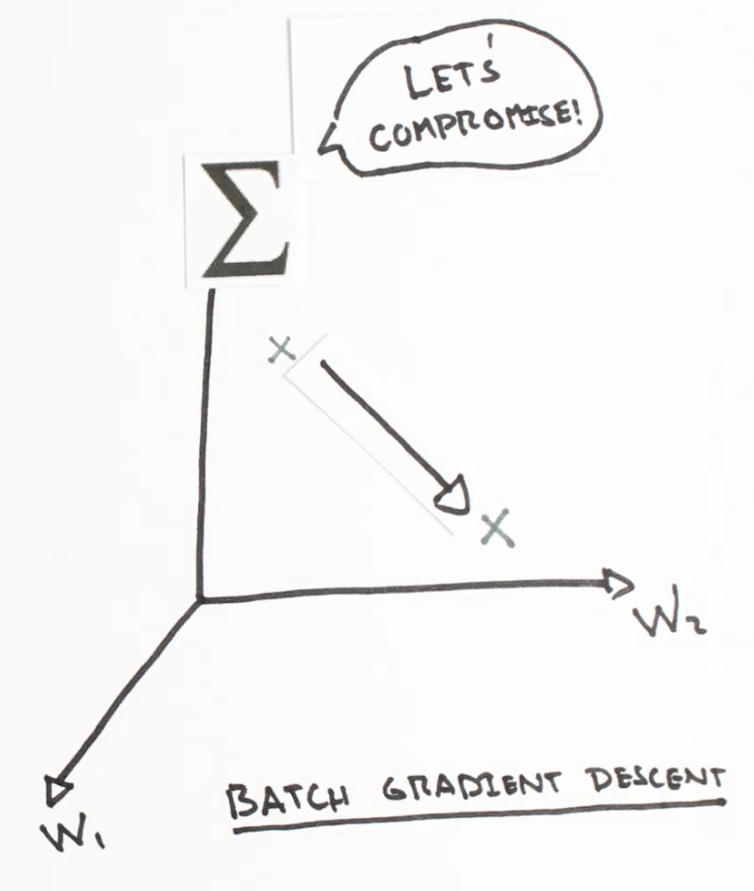 LET'S
COMPROMISE!
Σ
X
X
W2
W1
BATCH GRADIENT DESCENT